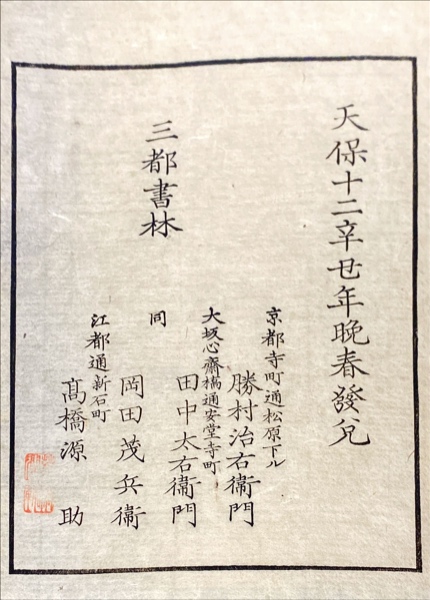 天保十二辛丑年晩春發兌
三都書林
京都寺町通松原下ル
勝村治右衞門
大坂心齋橋通安堂寺町
田中太右衞門
同
岡田茂兵衞
江都通新石町
髙橋源助